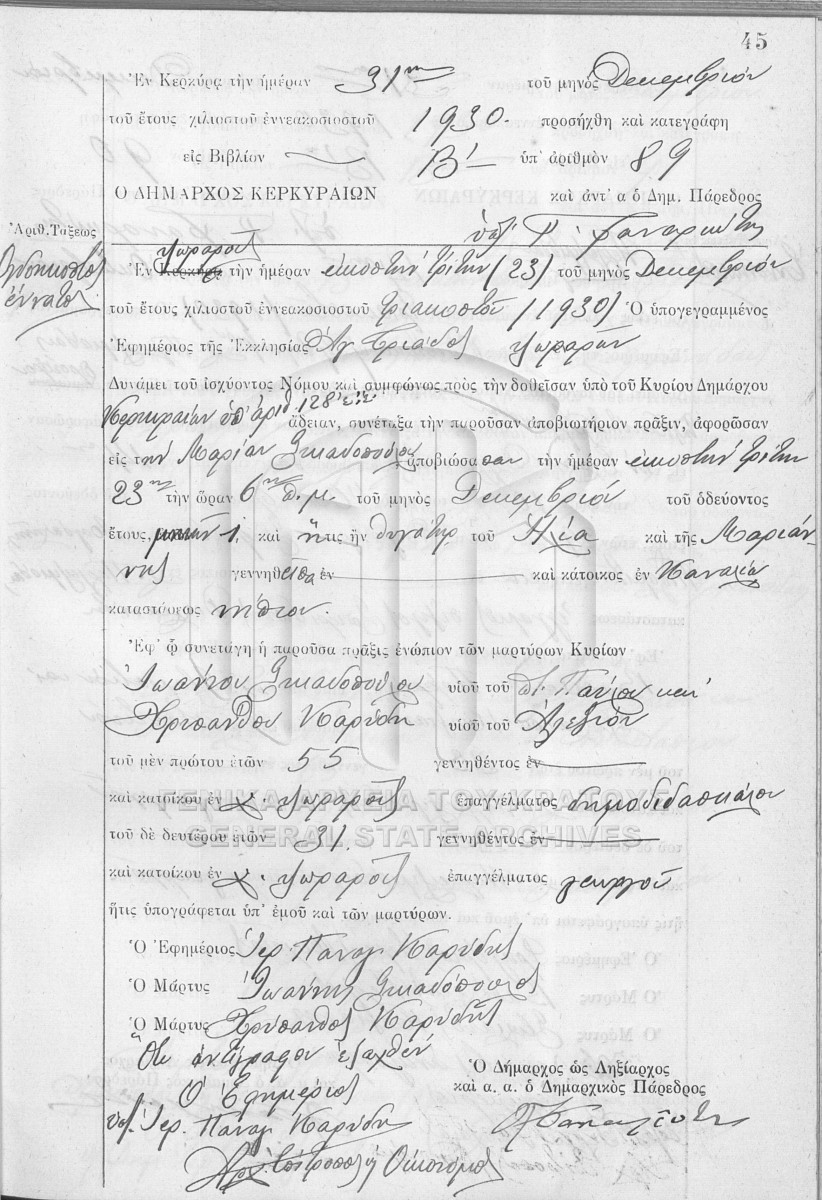 45
Ἐν Κερκύρᾳ τὴν ἡμέραν 31ην τοῦ μηνὸς Δεκεμβρίου
τοῦ ἔτους χιλιοστοῦ ἐννεακοσιοστοῦ 1930. προσήχθη καὶ κατεγράφη
εἰς Βιβλίον Β' ὑπ' ἀριθμὸν 89
Ο ΔΗΜΑΡΧΟΣ ΚΕΡΚΥΡΑΙΩΝ καὶ ἀντ' α ὁ Δημ. Πάρεδρος
Ἀριθ. Τάξεως
Ὀγδοηκοστὸς ἔννατος
Ἐν Κερκύρᾳ τὴν ἡμέραν εἰκοστὴν τρίτην (23) τοῦ μηνὸς Δεκεμβρίου
τοῦ ἔτους χιλιοστοῦ ἐννεακοσιοστοῦ τριακοστοῦ (1930) Ὁ ὑπογεγραμμένος
Ἐφημέριος τῆς Ἐκκλησίας Ἁγ. Τριάδος
Δυνάμει τοῦ ἰσχύοντος Νόμου καὶ συμφώνως πρὸς τὴν δοθεῖσαν ὑπὸ τοῦ Κυρίου Δημάρχου
Κερκυραίων ὑπ' ἀριθ 128 ἄδειαν, συνέταξα τὴν παροῦσαν ἀποβιωτήριον πρᾶξιν, ἀφορῶσαν
εἰς τὴν Μαρίαν Σκιαδοπούλου ἀποβιώσασαν τὴν ἡμέραν εἰκοστὴν τρίτην
23ην τὴν ὥραν 6ην π.μ. τοῦ μηνὸς Δεκεμβρίου τοῦ ὁδεύοντος
ἔτους, μηνῶν 1, καὶ ἥτις ἦν θυγάτηρ τοῦ Ἠλία καὶ τῆς Μαριάν-
νης γεννηθεῖσα ἐν καὶ κάτοικος ἐν Καναλίῳ
καταστάσεως νήπιον.
Ἐφ' ᾧ συνετάγη ἡ παροῦσα πρᾶξις ἐνώπιον τῶν μαρτύρων Κυρίων
Ἰωάννου Σκιαδοπούλου υἱοῦ τοῦ π. Παύλου καὶ
Χρυσάνθου Καρύδη υἱοῦ τοῦ Ἀλεξίου
τοῦ μὲν πρώτου ἐτῶν 55 γεννηθέντος ἐν
καὶ κατοίκου ἐν χ. ἐπαγγέλματος δημοδιδασκάλου
τοῦ δὲ δευτέρου ἐτῶν 31. γεννηθέντος ἐν
καὶ κατοίκου ἐν χ. ἐπαγγέλματος γεωργοῦ
ἥτις ὑπογράφεται ὑπ' ἐμοῦ καὶ τῶν μαρτύρων.
Ὁ Ἐφημέριος Ἱερ. Παναγ. Καρύδης
Ὁ Μάρτυς Ἰωάννης Σκιαδόπουλος
Ὁ Μάρτυς Χρύσανθος Καρύδης
Ὅτι ἀντίγραφον ἐξαχθὲν
Ὁ Ἐφημέριος
ὑπ. Ἱερ. Παναγ. Καρύδης
Οἰκονόμος
Ὁ Δήμαρχος ὡς Ληξίαρχος
καὶ α. α. ὁ Δημαρχικὸς Πάρεδρος
ΓΕΝΙΚΑ ΑΡΧΕΙΑ ΤΟΥ ΚΡΑΤΟΥΣ
GENERAL STATE ARCHIVES